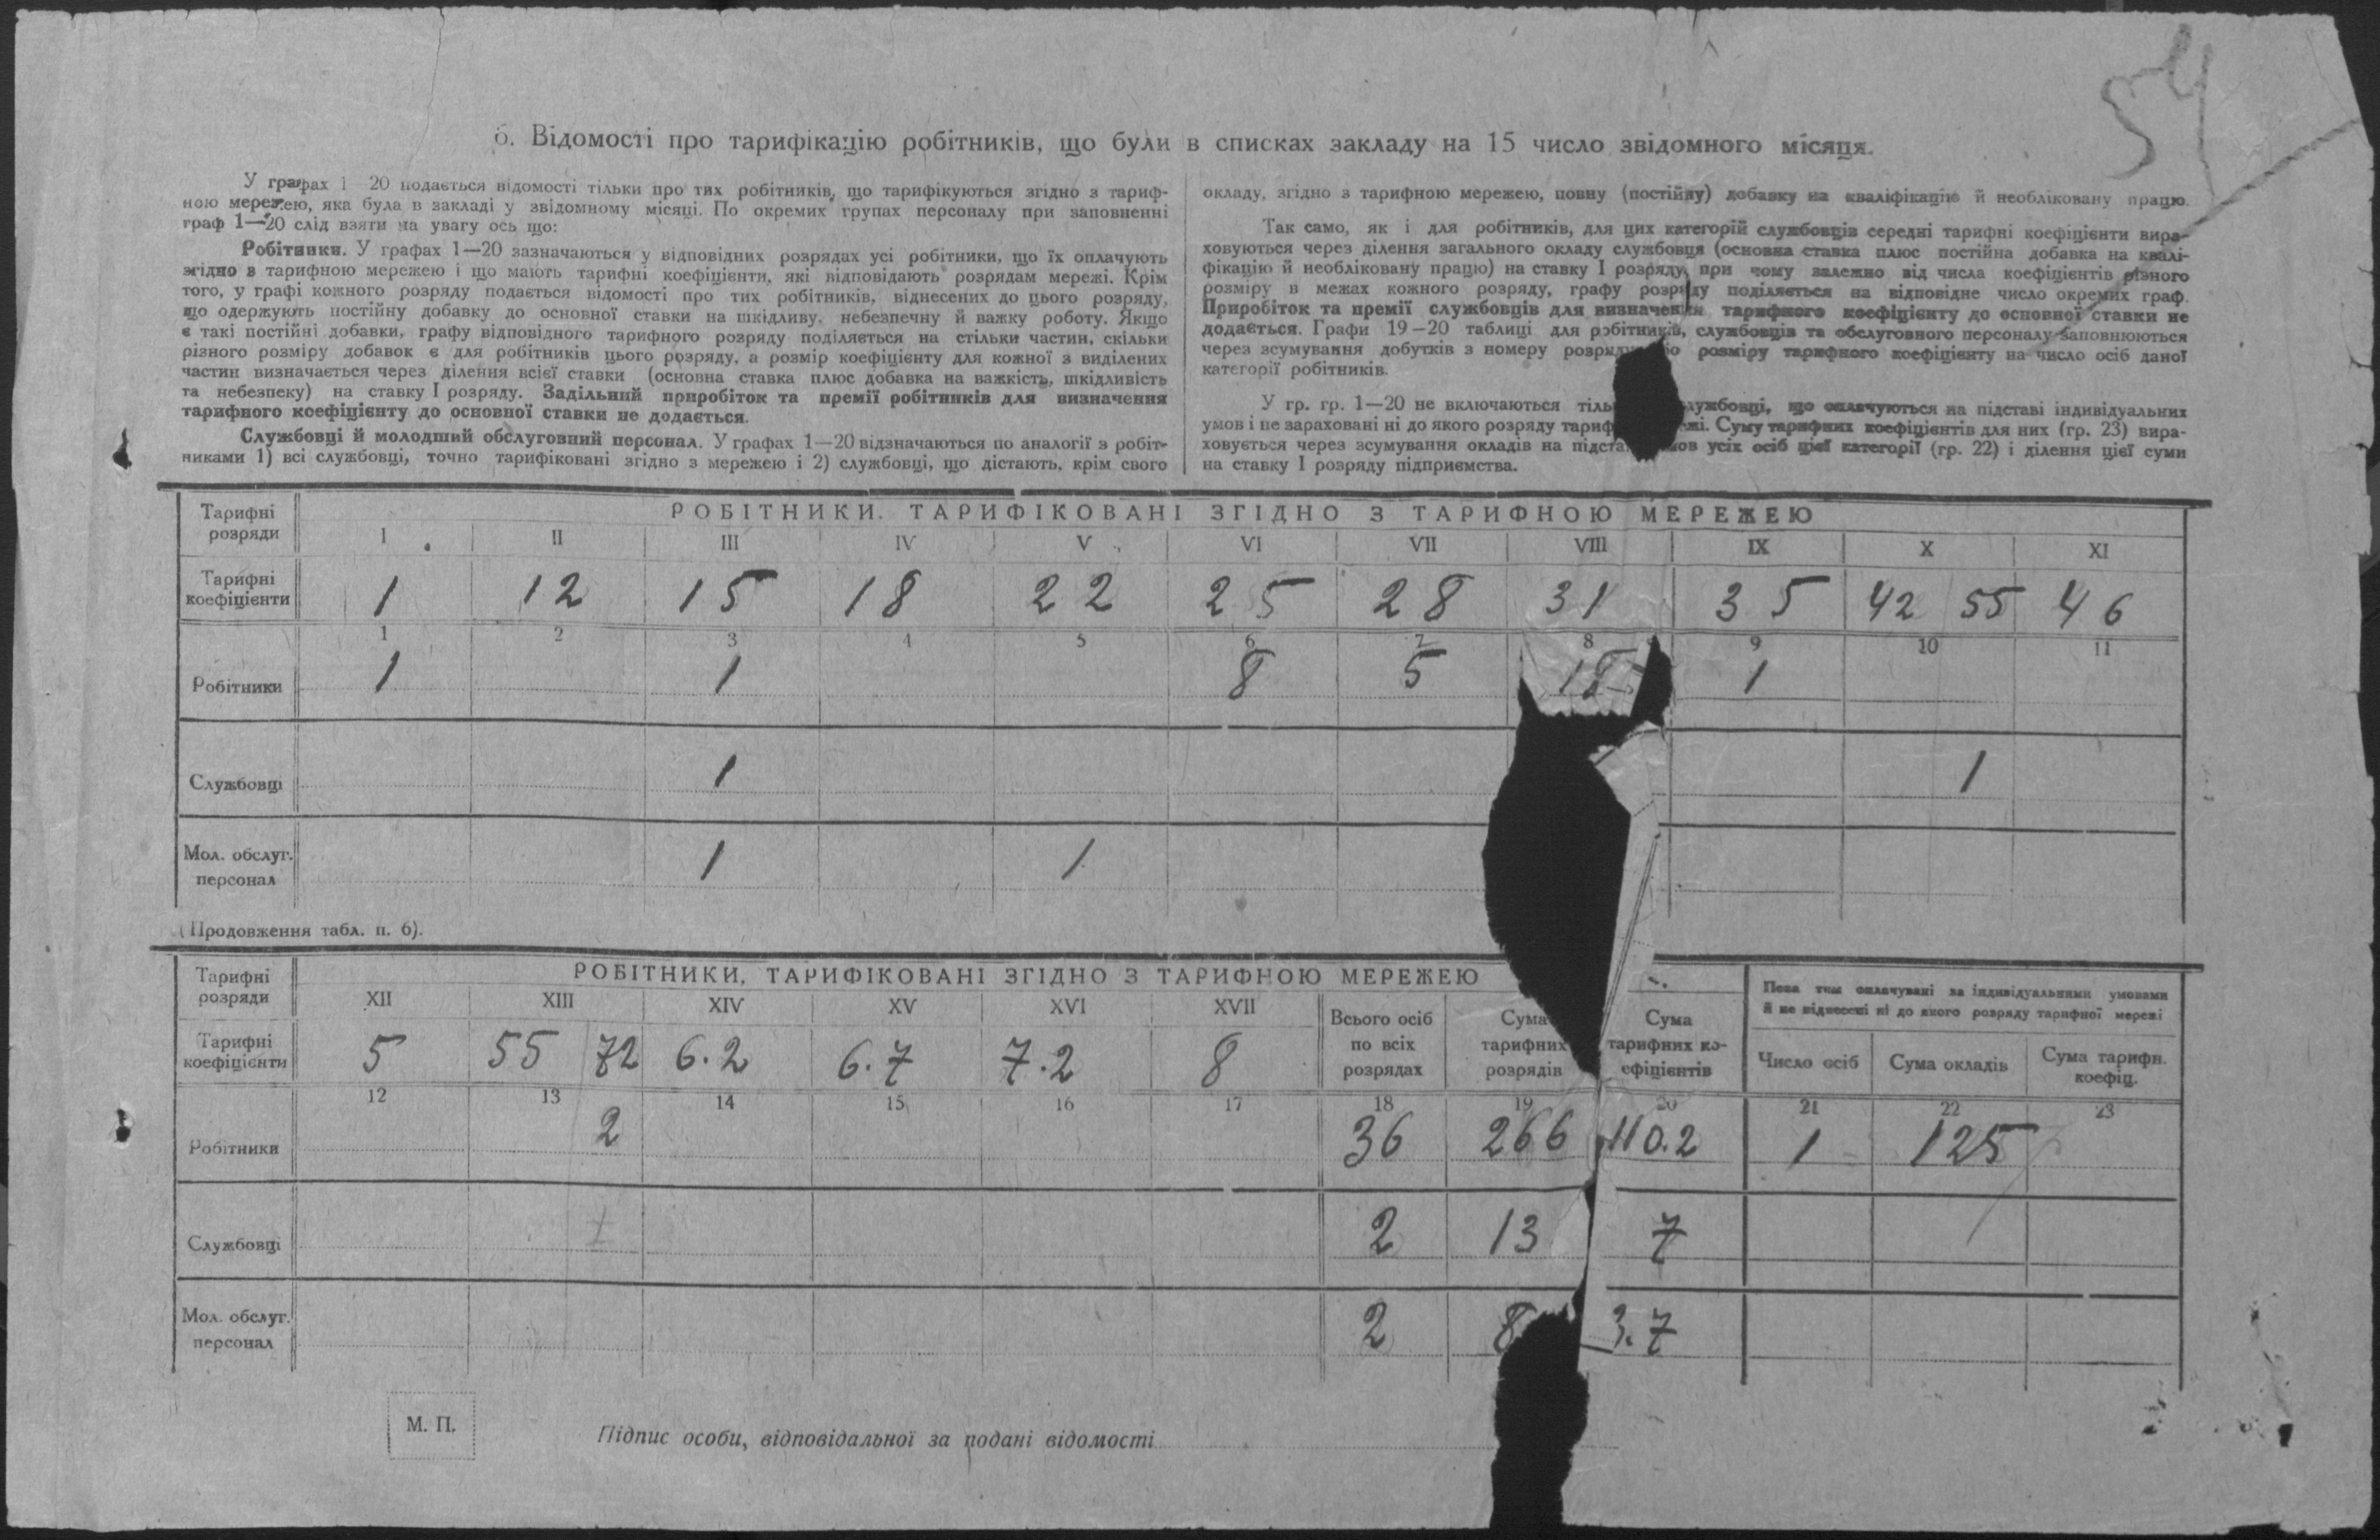 6. Відомості про тарифікацію робітників, що були в списках закладу на 15 число звідомного місяця.
54
У графах 1—20 подається відомості тільки про тих робітників, що тарифікуються згідно з тариф-
ною мережею, яка була в закладі у звідомному місяці. По окремих групах персоналу при заповненні
граф 1—20 слід взяти на увагу ось що:
Робітники. У графах 1—20 зазначаються у відповідних розрядах усі робітники, що їх оплачують
згідно з тарифною мережею і що мають тарифні коефіцієнти, які відповідають розрядам мережі. Крім
того, у графі кожного розряду подається відомості про тих робітників, віднесених до цього розряду,
що одержують постійну добавку до основної ставки на шкідливу, небезпечну й важку роботу. Якщо
є такі постійні добавки, графу відповідного тарифного розряду поділяється на стільки частин, скільки
різного розміру добавок є для робітників цього розряду, а розмір коефіцієнту для кожної з виділених
частин визначається через ділення всієї ставки (основна ставка плюс добавка на важкість, шкідливість
та небезпеку) на ставку I розряду. Задільний приробіток та премії робітників для визначення
тарифного коефіцієнту до основної ставки не додається.
Службовці й молодший обслуговний персонал. У графах 1—20 відзначаються по аналогії з робіт-
никами 1) всі службовці, точно тарифіковані згідно з мережею і 2) службовці, що дістають, крім свого
окладу, згідно з тарифною мережею, повну (постійну) добавку на кваліфікацію й необліковану працю.
Так само, як і для робітників, для цих категорій службовців середні тарифні коефіцієнти вира-
ховуються через ділення загального окладу службовця (основна ставка плюс постійна добавка на квалі-
фікацію й необліковану працю) на ставку I розряду, при чому залежно від числа коефіцієнтів різного
розміру в межах кожного розряду, графу розряду поділяється на відповідне число окремих граф.
Приробіток та премії службовців для визначення тарифного коефіцієнту до основної ставки не
додається. Графи 19—20 таблиці для робітників, службовців та обслуговного персоналу заповнюються
через зсумування добутків з номеру розряду розміру тарифного коефіцієнту на число осіб даної
категорії робітників.
У гр. гр. 1—20 не включаються службовці, що оплачуються на підставі індивідуальних
умов і не зараховані ні до якого розряду Суму тарифних коефіцієнтів для них (гр. 23) вира-
ховується через зсумування окладів на усіх осіб цієї категорії (гр. 22) і ділення цієї суми
на ставку I розряду підприємства.
Тарифні розряди РОБІТНИКИ, ТАРИФІКОВАНІ ЗГІДНО З ТАРИФНОЮ МЕРЕЖЕЮ
I II III IV V VI VII VIII IX X XI
Тарифні коефіцієнти 1 12 15 18 22 25 28 31 35 42 55 46
1 2 3 4 5 6 7 8 9 10 11
Робітники 1 1 8 5 1
Службовці 1 1
Мол. обслуг. персонал 1 1
(Продовження табл. п. 6).
Тарифні розряди РОБІТНИКИ, ТАРИФІКОВАНІ ЗГІДНО З ТАРИФНОЮ МЕРЕЖЕЮ
Поза тим оплачувані за індивідуальними умовами
й не віднесені ні до якого розряду тарифної мережі
XII XIII XIV XV XVI XVII Всього осіб по всіх розрядах Сума тарифних розрядів Сума тарифних ко-ефіцієнтів Число осіб Сума окладів Сума тарифн. коефіц.
Тарифні коефіцієнти 5 55 72 6.2 6.7 7.2 8
12 13 14 15 16 17 18 19 20 21 22 23
Робітники 2 36 266 110.2 1 125
Службовці 1 2 13 7
Мол. обслуг. персонал 2 8 3.7
М. П.
Підпис особи, відповідальної за подані відомості